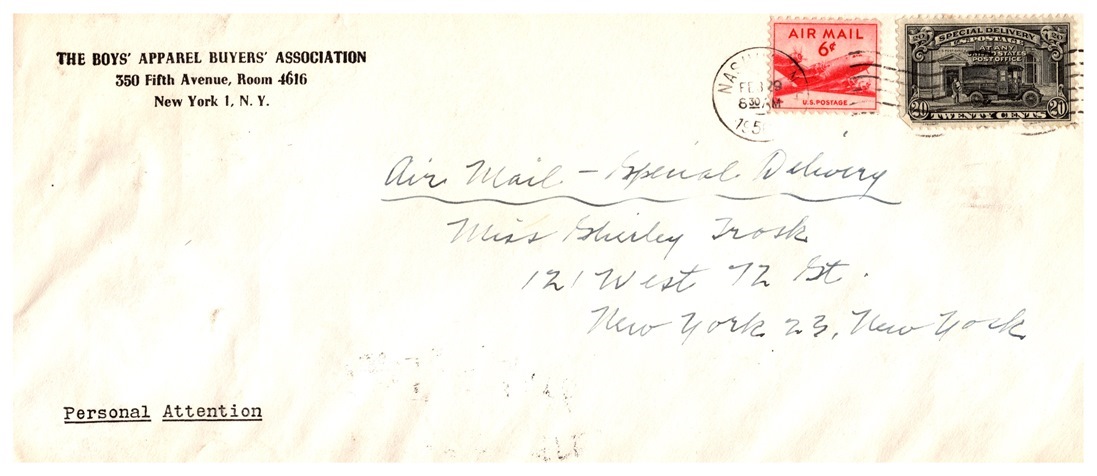 THE BOYS' APPAREL BUYERS' ASSOCIATION
350 Fifth Avenue, Room 4616
New York 1, N. Y.
AIR MAIL
6¢
U.S. POSTAGE
SPECIAL DELIVERY
U.S. POSTAGE
20 20
AT ANY
UNITED STATES
POST OFFICE
20 20
TWENTY CENTS
FEB 29
8 30 AM
Air Mail - Special Delivery
Miss Shirley Trosk
121 West 72 St.
New York 23, New York
Personal Attention